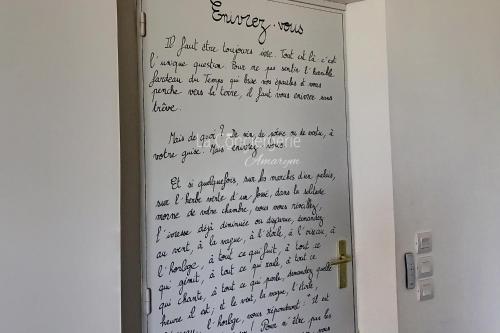 Enivrez-vous
Il faut être toujours ivre. Tout est là : c'est
l'unique question. Pour ne pas sentir l'horrible
fardeau du Temps qui brise vos épaules et vous
penche vers la terre, il faut vous enivrer sans
trêve.
Mais de quoi ? De vin, de poésie ou de vertu, à
votre guise. Mais enivrez-vous.
La Conciergerie
Amarym
Et si quelquefois, sur les marches d'un palais,
sur l'herbe verte d'un fossé, dans la solitude
morne de votre chambre, vous vous réveillez,
l'ivresse déjà diminuée ou disparue, demandez
au vent, à la vague, à l'étoile, à l'oiseau, à
l'horloge, à tout ce qui fuit, à tout ce
qui gémit, à tout ce qui roule, à tout ce
qui chante, à tout ce qui parle, demandez quelle
heure il est ; et le vent, la vague, l'étoile,
l'horloge, vous répondront : "Il est
Pour n'être pas les